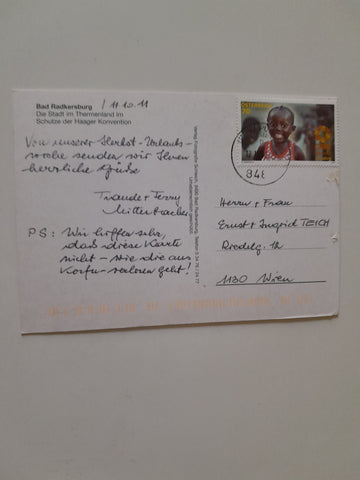 Bad Radkersburg / 11.10.11
Die Stadt im Thermenland im
Schutze der Haager Konvention
Von unserer Herbst-Urlaubs-
woche senden wir Ihnen
herzliche Grüße
Traude + Ferry
Mitterbacher
PS: Wir hoffen sehr,
daß diese Karte
nicht - wie die aus
Korfu - verloren geht!
ÖSTERREICH
Herrn + Frau
Ernst + Ingrid TEICH
Riedelg.
1130 Wien